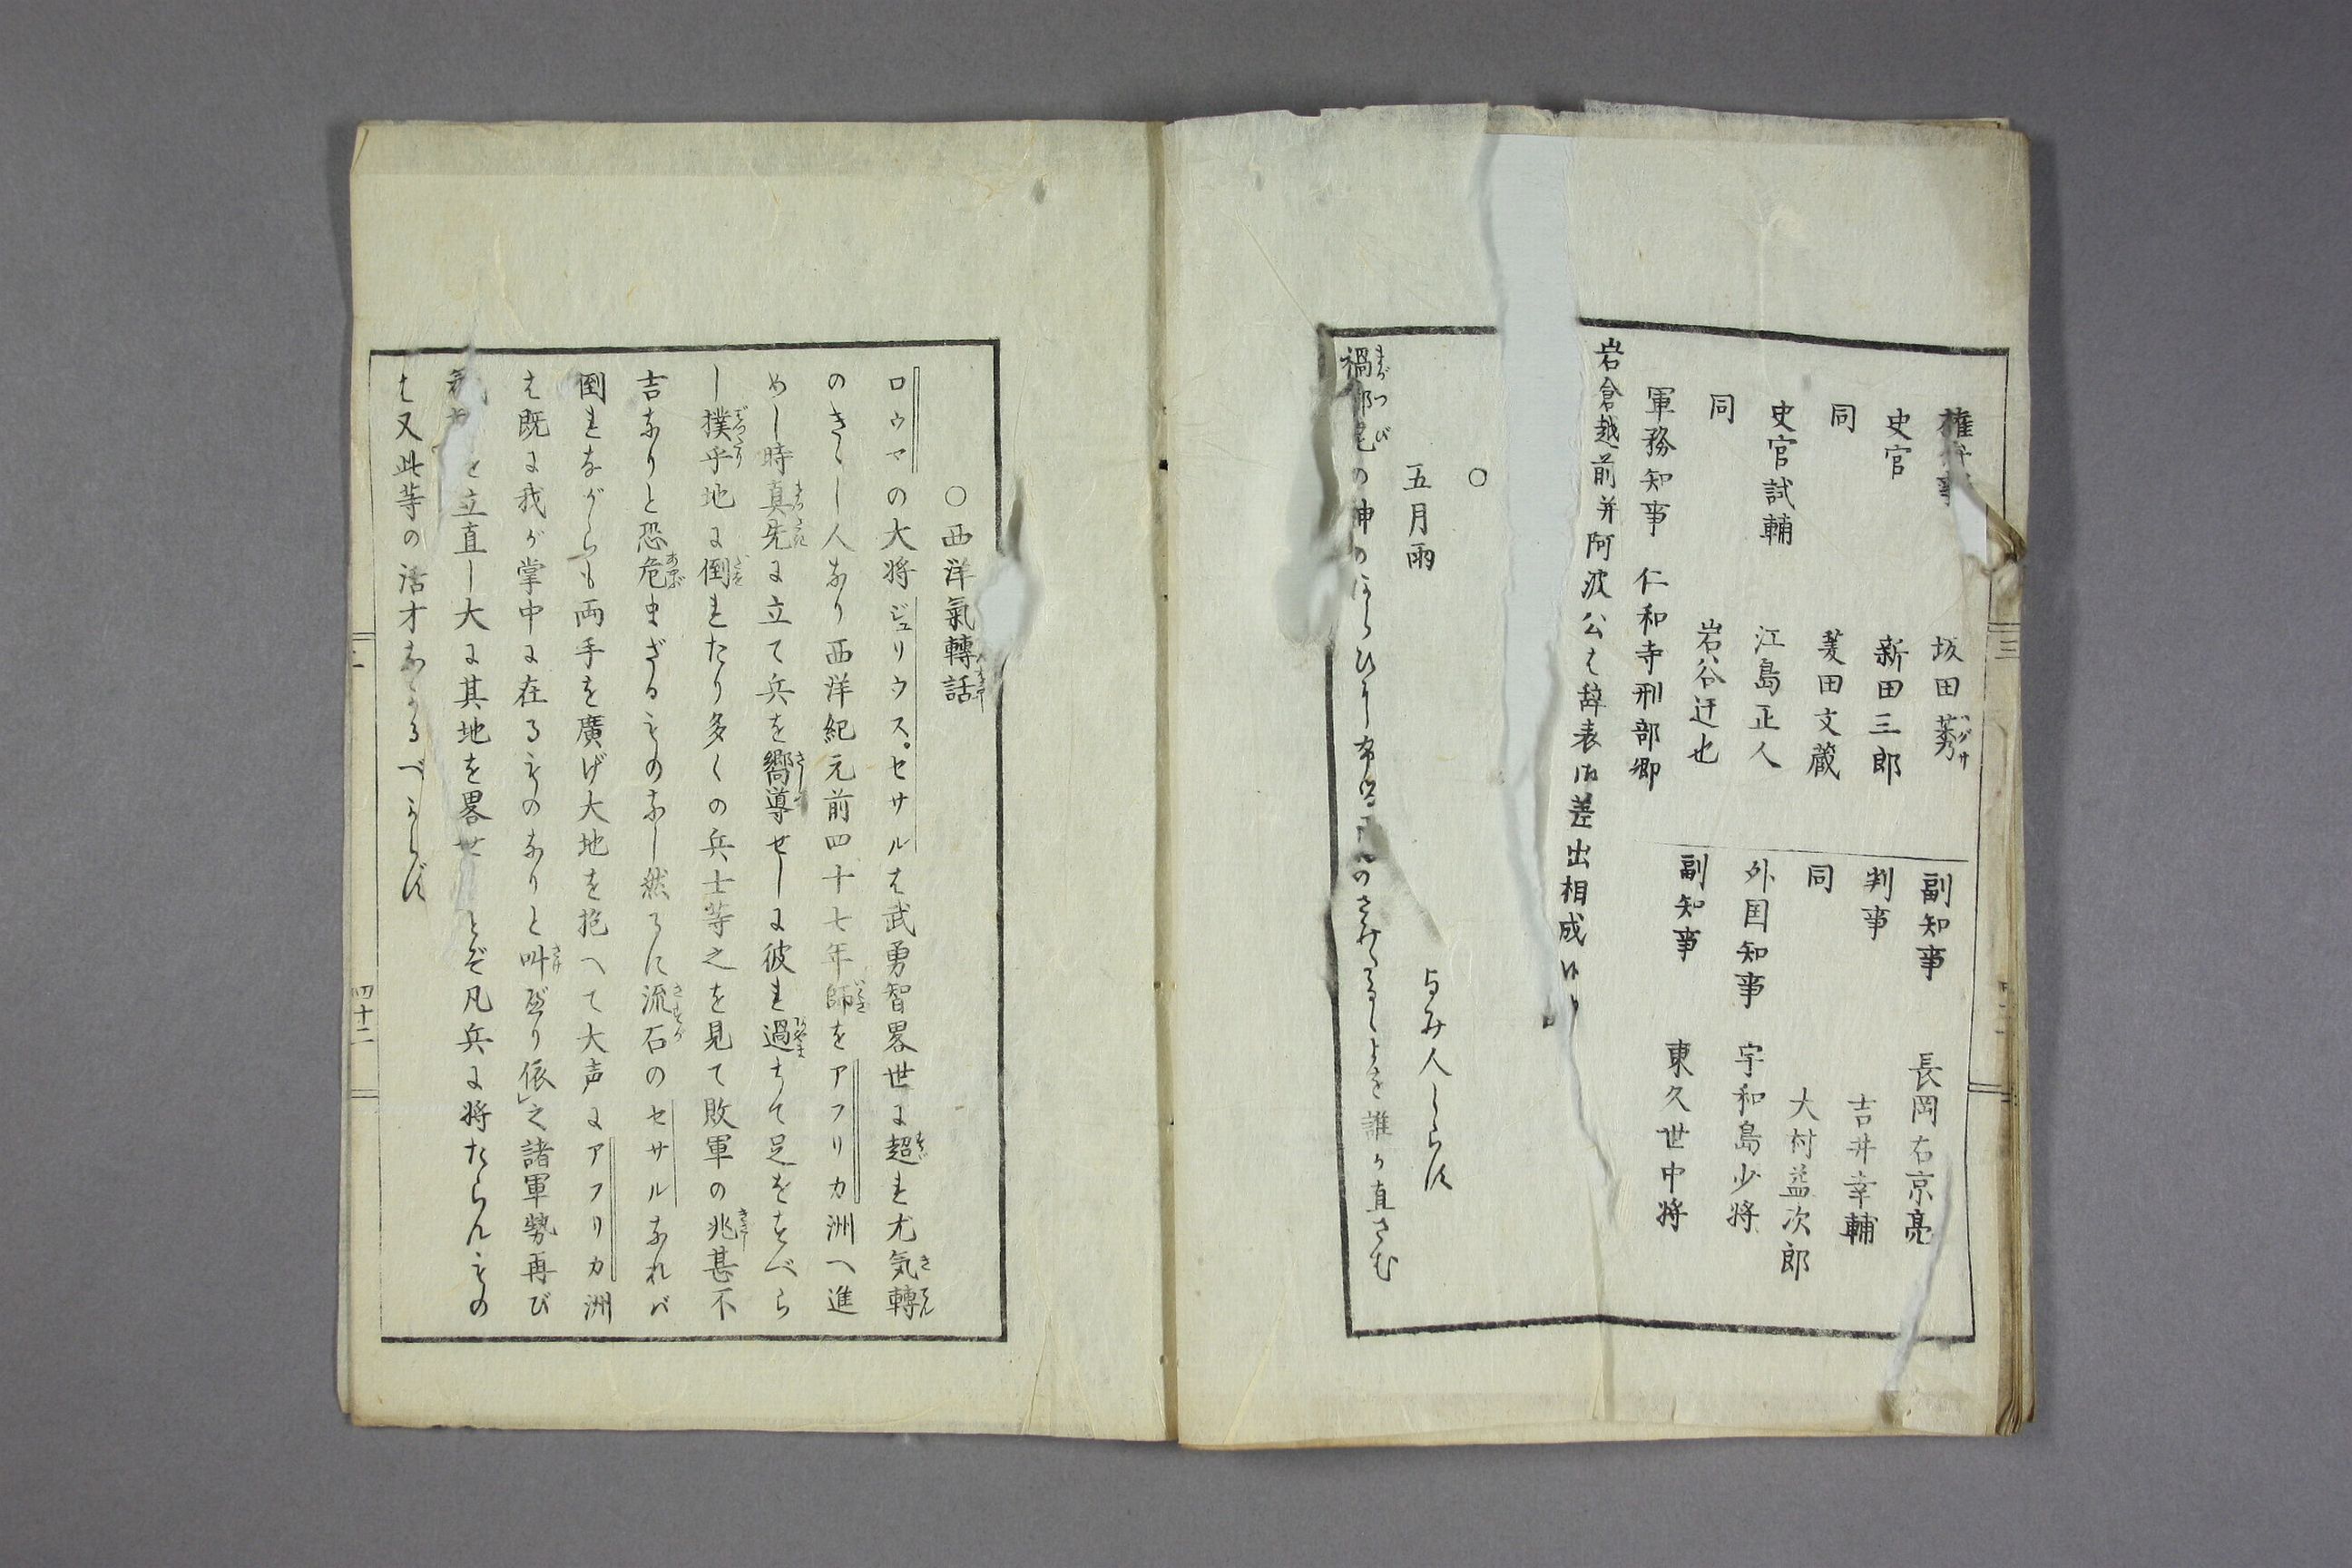 権弁事 坂田莠
史官 新田三郎
同 菱田文蔵
史官試輔 江島正人
同 岩谷迂也
軍務知事 仁和寺刑部卿
副知事 長岡右京亮
判事 吉井幸輔
同 大村益次郎
外国知事 宇和島少将
副知事 東久世中将
岩倉越前并阿波公は辞表御差出相成候
○
五月雨 よみ人しらす
禍 の神の さみたるゝよを誰か直さむ
○西洋氣轉話
ロウマの大将ジュリウス。セサルは武勇智畧世に超れ尤気轉
のきゝし人なり西洋紀元前四十七年師をアフリカ洲へ進
めし時真先に立て兵を嚮導せしに彼れ過ちて足をすべら
し撲乎地に倒れたり多くの兵士等之を見て敗軍の兆甚不
吉なりと恐危まざるものなし然るに流石のセサルなれバ
倒れながらも両手を廣げ大地を抱へて大声にアフリカ洲
は既に我が掌中に在るものなりと叫びけり依之諸軍勢再び
を立直し大に其地を畧せ とぞ凡兵に将たらんもの
は又此等の活才なかるべからす
四十二